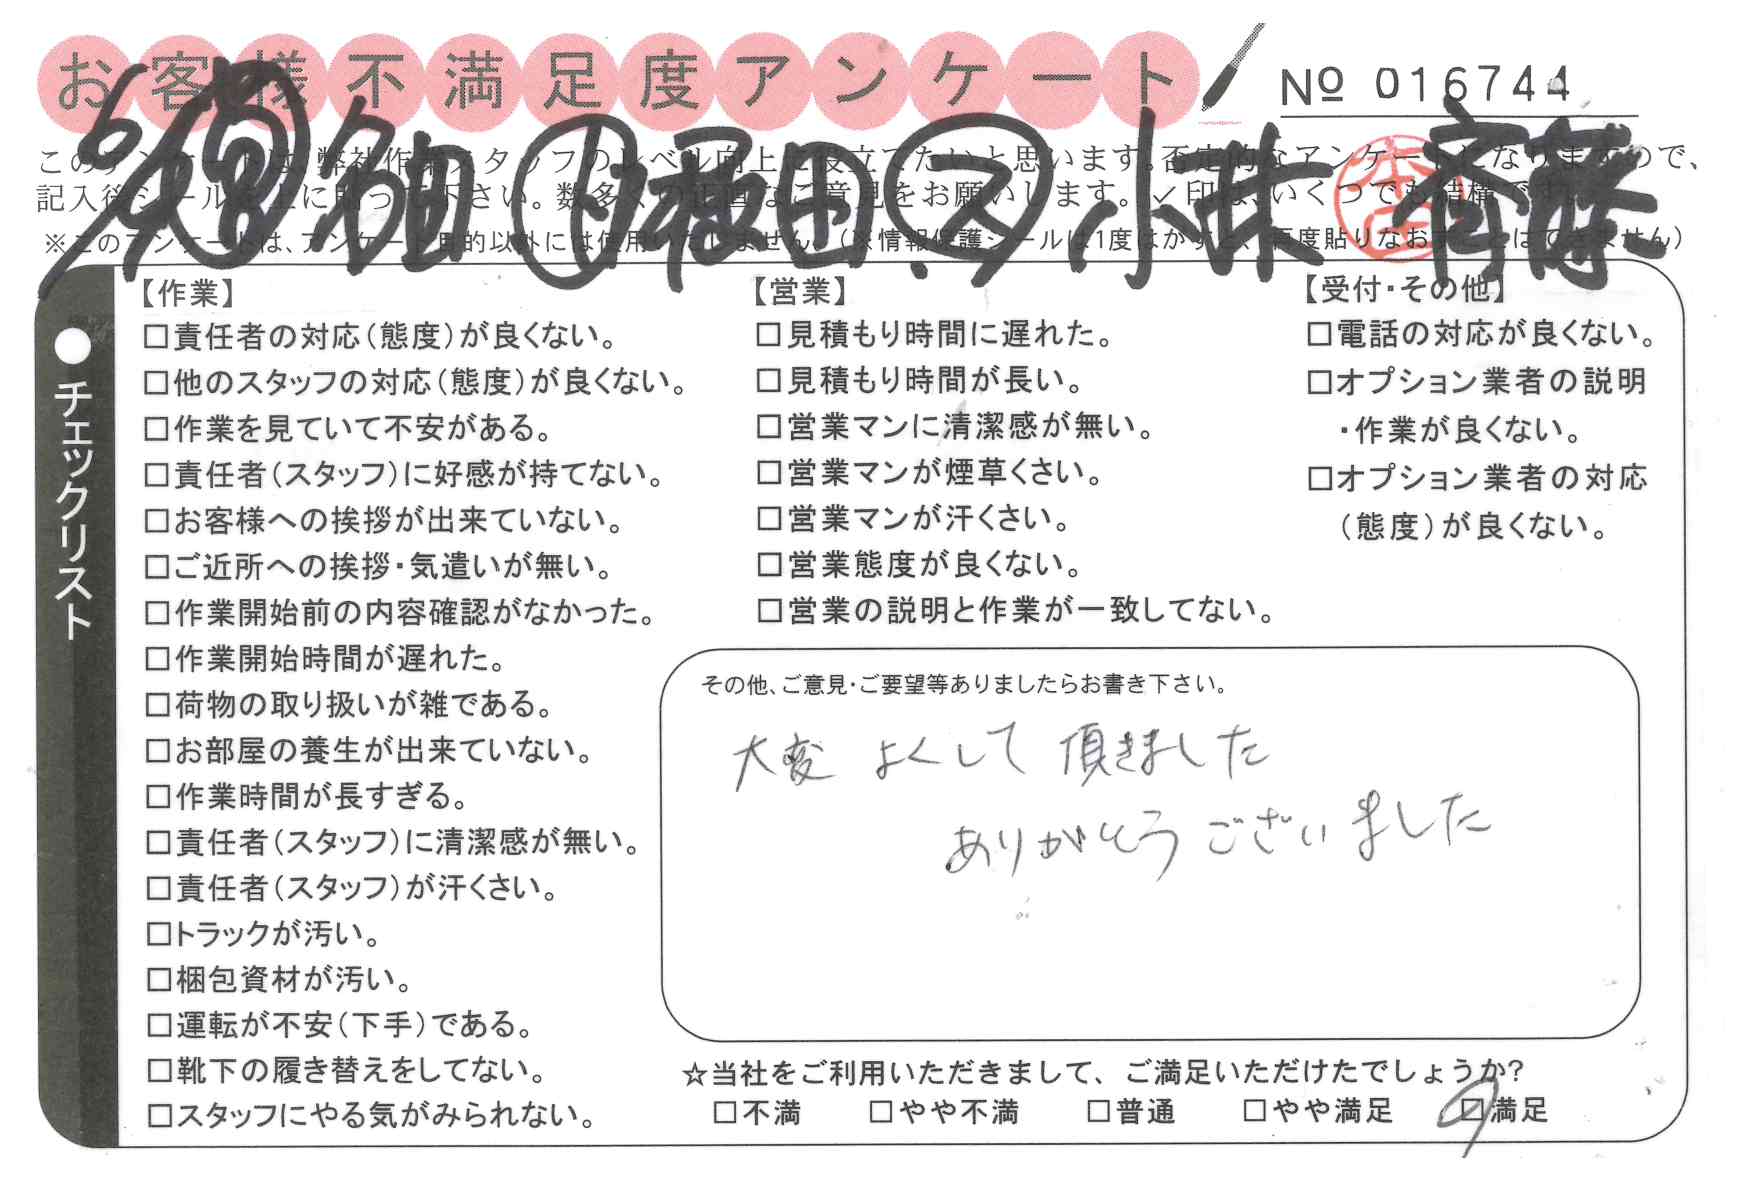 お客様不満足度アンケート
№ 016744
このアンケートは、弊社作業スタッフのレベル向上に役立てたいと思います。否定的なアンケートになりますので、
記入後シールを上に貼って下さい。数多くの正直なご意見をお願いします。✓印は、いくつでも結構です。
※このアンケートは、アンケート目的以外には使用いたしません。(※情報保護シールは1度はがすと、再度貼りなおすことはできません)
小林 斉藤
チェックリスト
【作業】
□責任者の対応(態度)が良くない。
□他のスタッフの対応(態度)が良くない。
□作業を見ていて不安がある。
□責任者(スタッフ)に好感が持てない。
□お客様への挨拶が出来ていない。
□ご近所への挨拶・気遣いが無い。
□作業開始前の内容確認がなかった。
□作業開始時間が遅れた。
□荷物の取り扱いが雑である。
□お部屋の養生が出来ていない。
□作業時間が長すぎる。
□責任者(スタッフ)に清潔感が無い。
□責任者(スタッフ)が汗くさい。
□トラックが汚い。
□梱包資材が汚い。
□運転が不安(下手)である。
□靴下の履き替えをしてない。
□スタッフにやる気がみられない。
【営業】
□見積もり時間に遅れた。
□見積もり時間が長い。
□営業マンに清潔感が無い。
□営業マンが煙草くさい。
□営業マンが汗くさい。
□営業態度が良くない。
□営業の説明と作業が一致してない。
【受付・その他】
□電話の対応が良くない。
□オプション業者の説明
・作業が良くない。
□オプション業者の対応
(態度)が良くない。
その他、ご意見・ご要望等ありましたらお書き下さい。
大変 よくして 頂きました
ありがとう ございました
☆当社をご利用いただきまして、ご満足いただけたでしょうか?
□不満 □やや不満 □普通 □やや満足 □満足